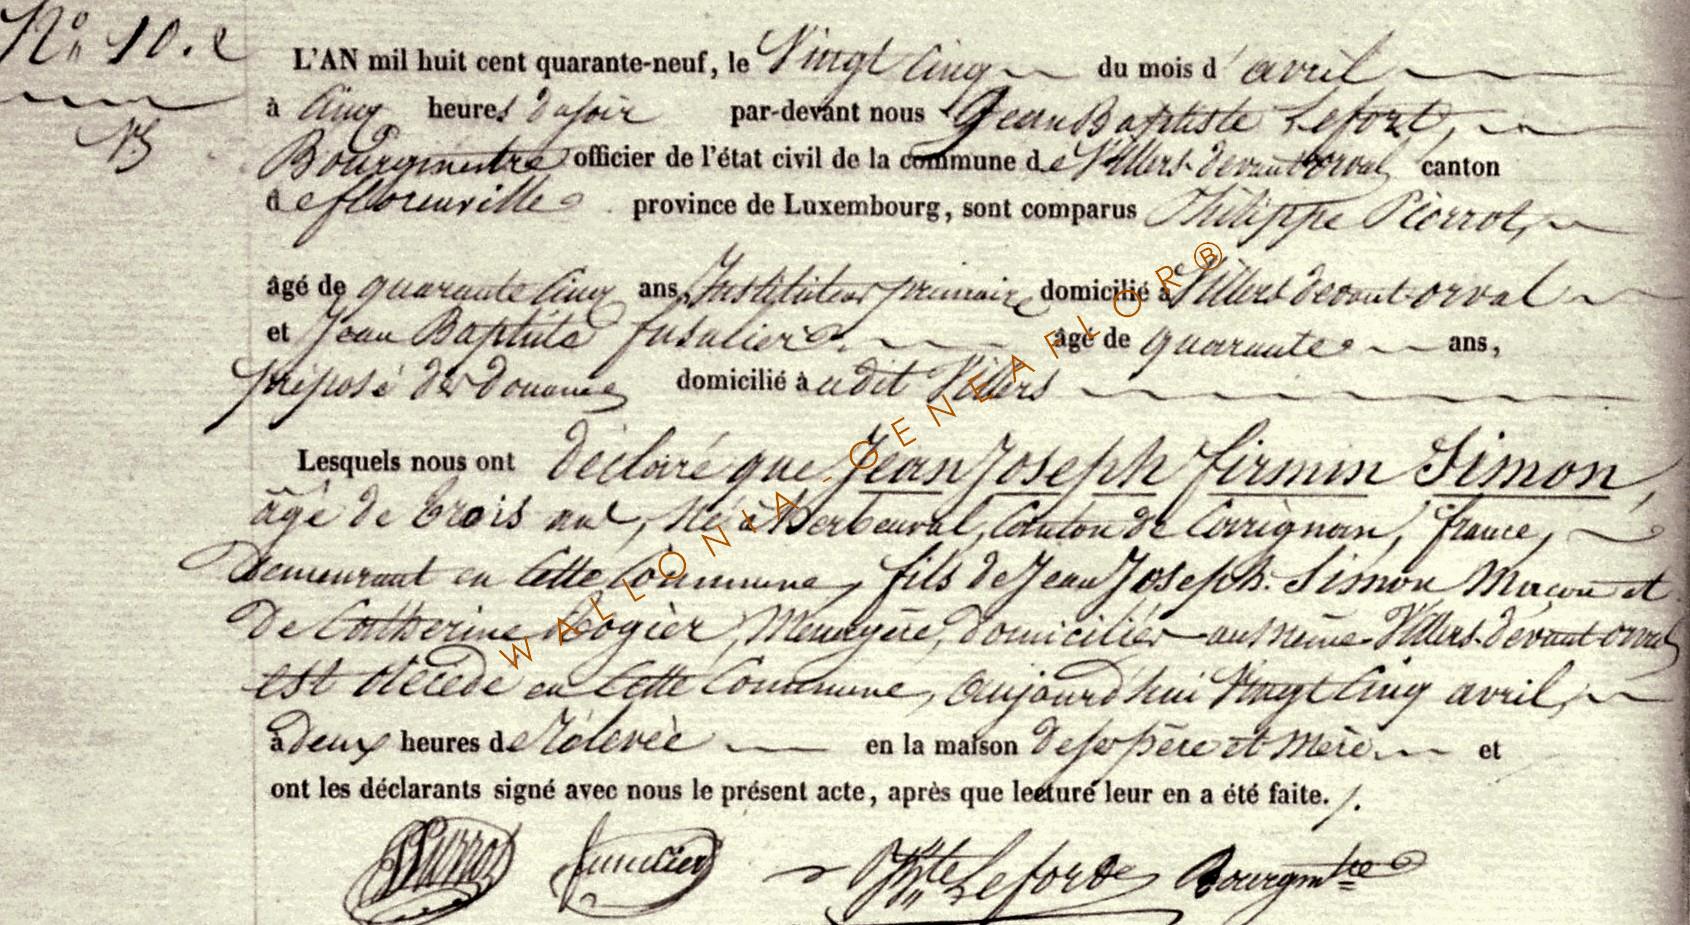 N° 10. e
L'AN mil huit cent quarante-neuf, le Vingt Cinq du mois d'avril
à Cinq heures du soir par-devant nous Jean Baptiste Lefort,
Bourgmestre officier de l'état civil de la commune de Villers-devant-orval canton
de florenville province de Luxembourg, sont comparus Philippe Pierrot,
âgé de quarante Cinq ans, Instituteur primaire domicilié à Villers devant-orval
et Jean Baptiste fusulier âgé de quarante ans,
préposé des douanes domicilié à udit Villers
Lesquels nous ont déclaré que Jean Joseph firmin Simon,
âgé de trois ans, Né à Herbeuval, Canton de Carignan, france,
demeurant en Cette Commune, fils de Jean Joseph Simon Maçon et
de Catherine Rogier, Menagère, domiciliés au même Villers-devant-orval
est décédé en Cette Commune, aujourd'hui Vingt Cinq avril,
à deux heures de Rélevée en la maison de ses père et Mère et
ont les déclarants signé avec nous le présent acte, après que lecture leur en a été faite. /.
PPierrot fusulier JBte Lefort Bourgmtre
WALLONIA-GENEAFLOR®